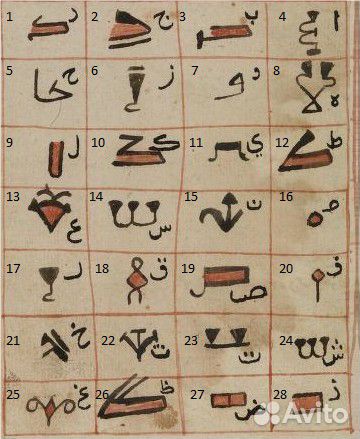 1 د 2 ج 3 ب 4 ا
5 ح 6 ز 7 و 8 ه
9 ل 10 ك 11 ي 12 ط
13 ع 14 س 15 ن 16 م
17 ر 18 ق 19 ص 20
21 خ 22 ث 23 ت 24 ش
25 غ 26 ظ 27 ض 28 ذ
Avito